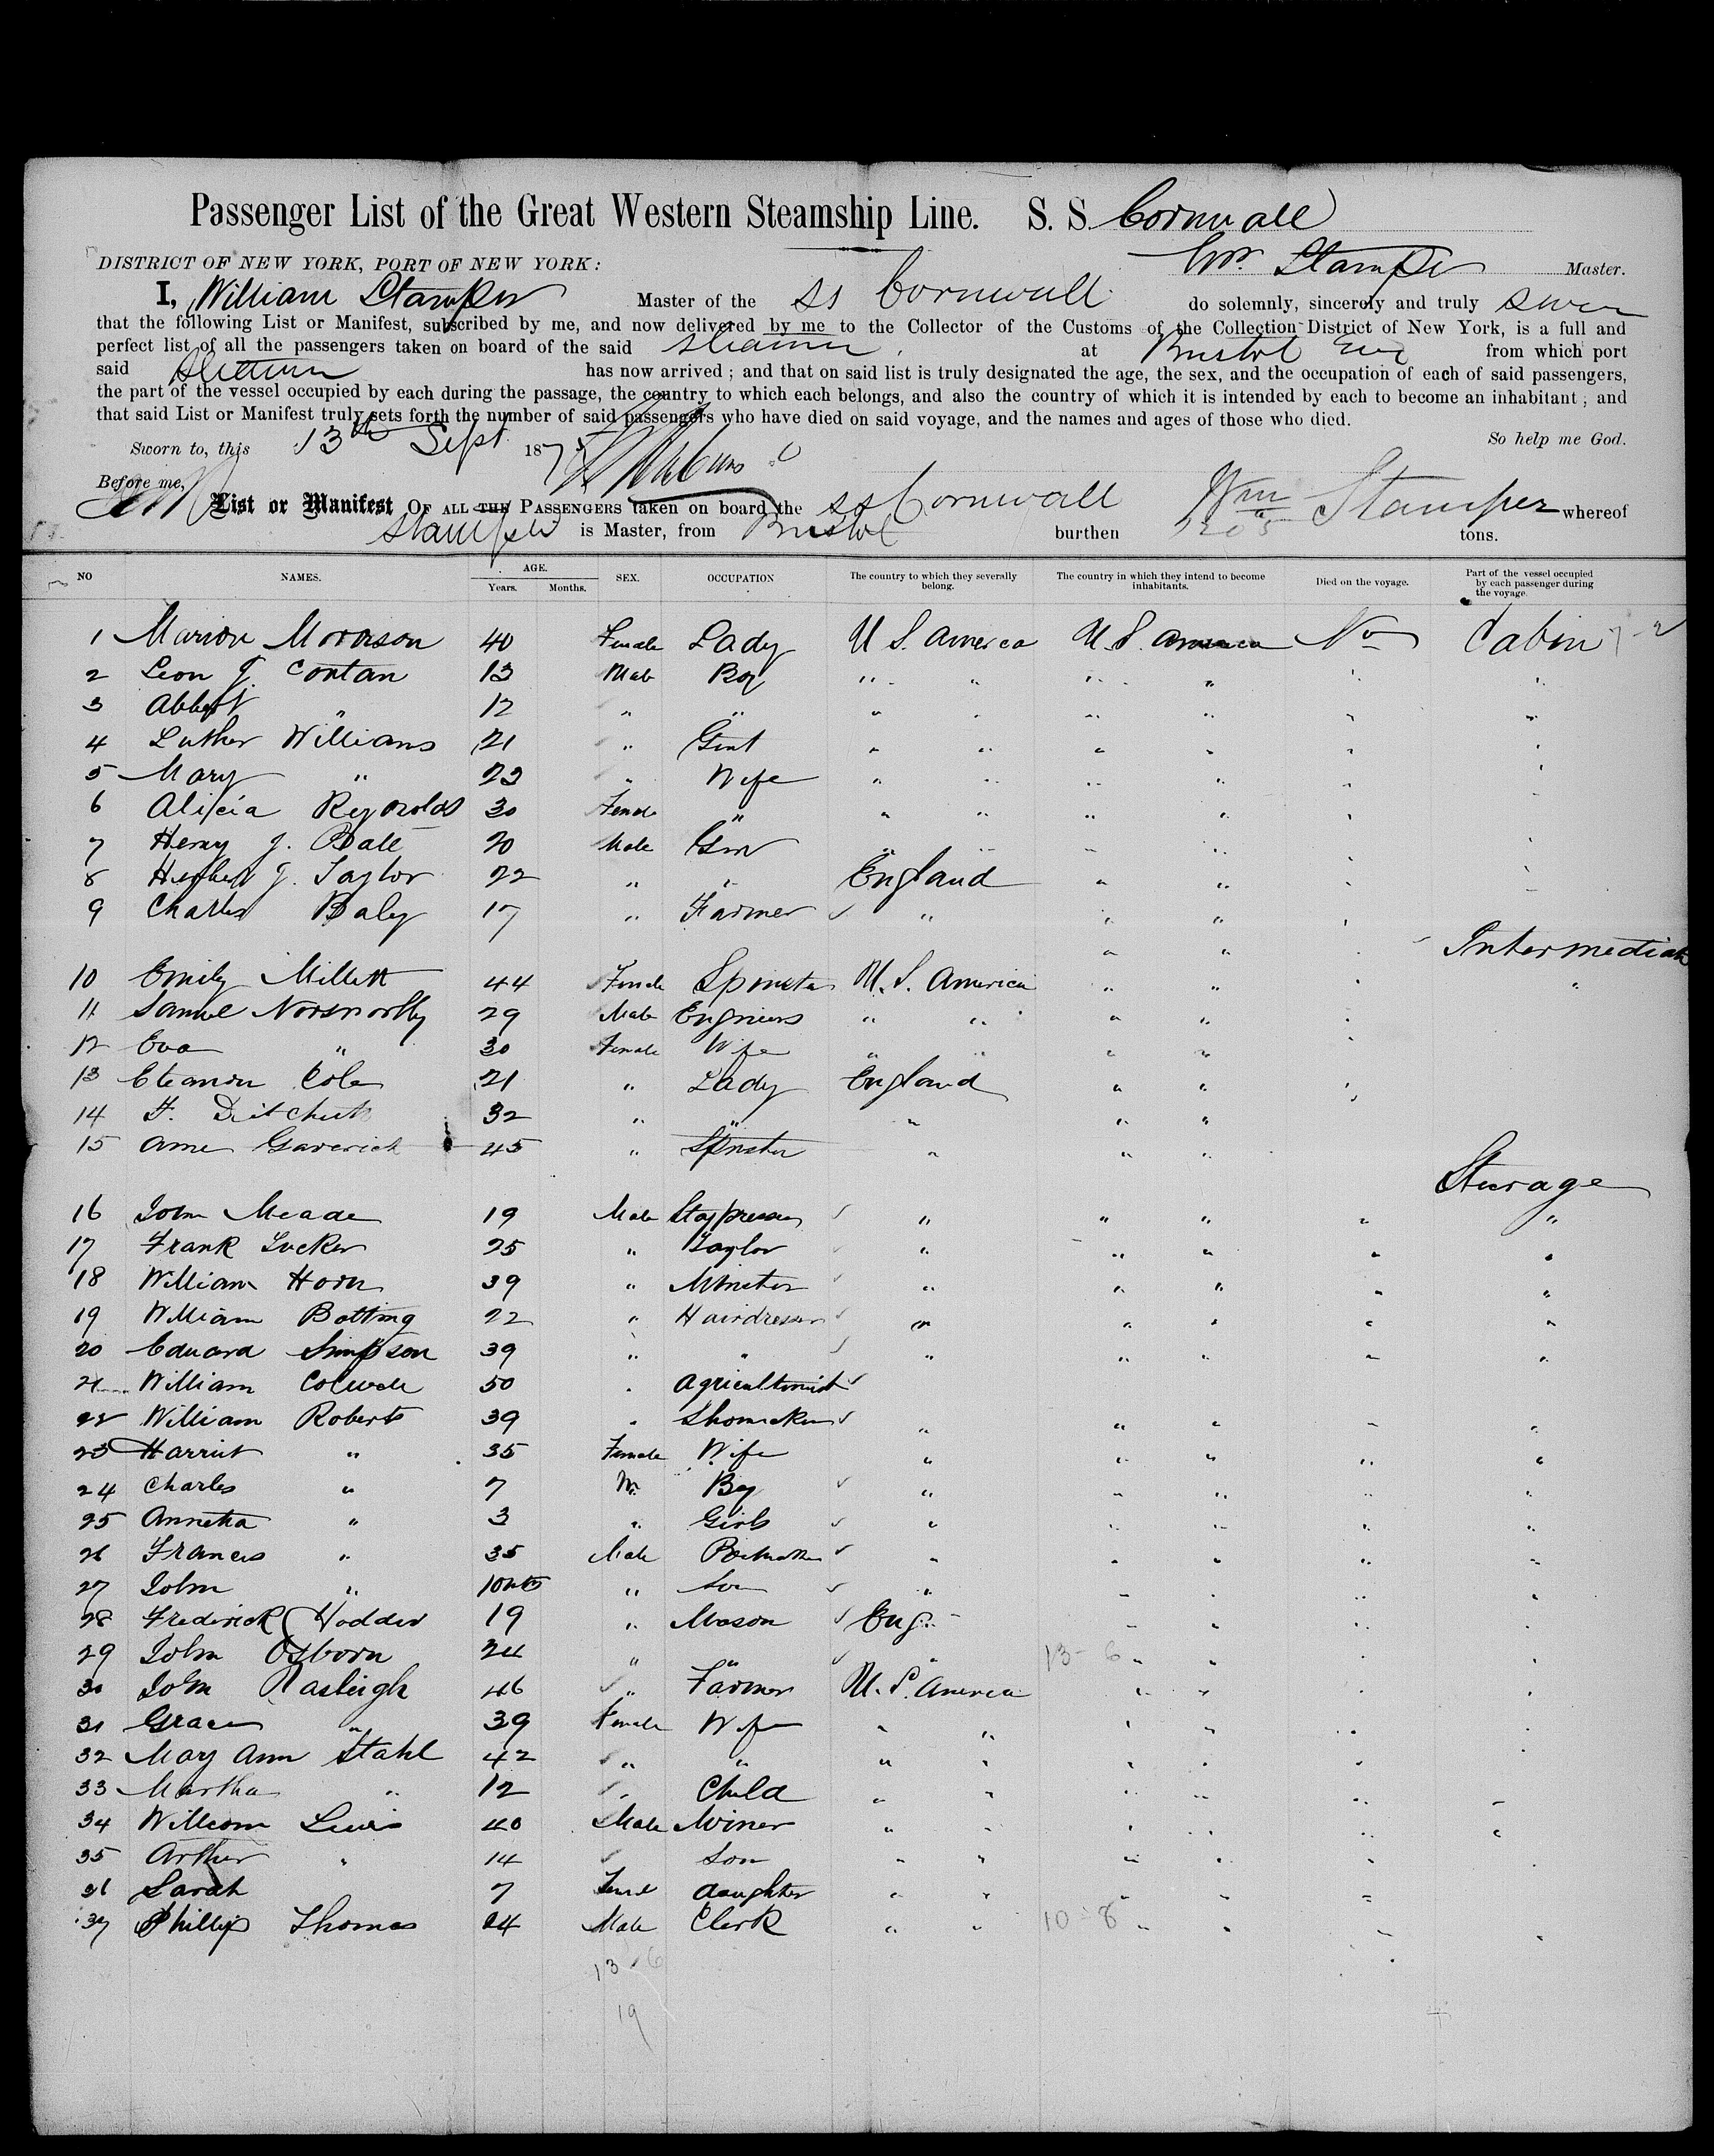 Passenger List of the Great Western Steamship Line. S. S. Cornwall
Wm. Stamper Master.
DISTRICT OF NEW YORK, PORT OF NEW YORK:
I, William Stamper Master of the SS Cornwall do solemnly, sincerely and truly swear
that the following List or Manifest, subscribed by me, and now delivered by me to the Collector of the Customs of the Collection District of New York, is a full and
perfect list of all the passengers taken on board of the said Steamer at Bristol Eng from which port
said Steamer has now arrived; and that on said list is truly designated the age, the sex, and the occupation of each of said passengers,
the part of the vessel occupied by each during the passage, the country to which each belongs, and also the country of which it is intended by each to become an inhabitant; and
that said List or Manifest truly sets forth the number of said passengers who have died on said voyage, and the names and ages of those who died.
So help me God.
Sworn to, this 13th Sept 187
Before me,
List or Manifest OF ALL THE PASSENGERS taken on board the SS Cornwall Wm Stamper whereof
Stamper is Master, from Bristol burthen tons.
NO NAMES. AGE. Years. Months. SEX. OCCUPATION The country to which they severally belong. The country in which they intend to become inhabitants. Died on the voyage. Part of the vessel occupied by each passenger during the voyage.
1 Marion Morrison 40 Female Lady U S. America U. S. America No Cabin
2 Leon J. Contan 13 Male Boy " " " " " "
3 Albert " 12 " " " " " " " "
4 Luther Williams 21 " Gent " " " " " "
5 Mary " 23 " Wife " " " " " "
6 Alicia Reynolds 30 Female " " " " " "
7 Henry J. Bate 20 Male Gen " " " " "
8 Herbert J. Taylor 22 " " England " " " "
9 Charles Baly 17 " Farmer " " " "
" " " Intermediate
10 Emily Millett 44 Female Spinster U. S. America " " " "
11 Samuel Norsworthy 29 Male Engineer " " " " "
12 Eva " 30 Female Wife " " " " "
13 Eleanor Cole 21 " Lady England " " "
14 F. 32 " " " " "
15 Ame Gaverick 45 " Spinster " " "
Steerage
16 John Meade 19 Male " " " " "
17 Frank Tucker 25 " Taylor " " " " "
18 William Horn 39 " Minister " " " " "
19 William Botting 22 " Hairdresser " " " " "
20 Edward Simpson 39 " " " " " " "
21 William 50 " Agriculturist
22 William Roberts 39 " Shomaker " " " " "
23 Harriet " 35 Female Wife " " " " "
24 Charles " 7 M. Boy " " " " "
25 Annetta " 3 " Girls " " " " "
26 Frances " 35 Male " " " " "
27 John " 10 mts " Son " " " " "
28 Frederick Hodder 19 " Mason Eng. " " " "
29 John Osborn 24 " " " 13-6 " " " "
30 John Rasleigh 46 " Farmer U. S. America " " " "
31 Grace " 39 Female Wife " " " " " "
32 Mary Ann Stahl 42 " " " " " " "
33 Martha " 12 " Child " " " " " "
34 William Lewis 40 Male Miner " " " " " "
35 Arthur " 14 Son " " " " " "
36 Sarah 7 Female daughter " " " " "
37 Phillip Thomas 24 Male Clerk " " 10-8 " " " "
13 6
19